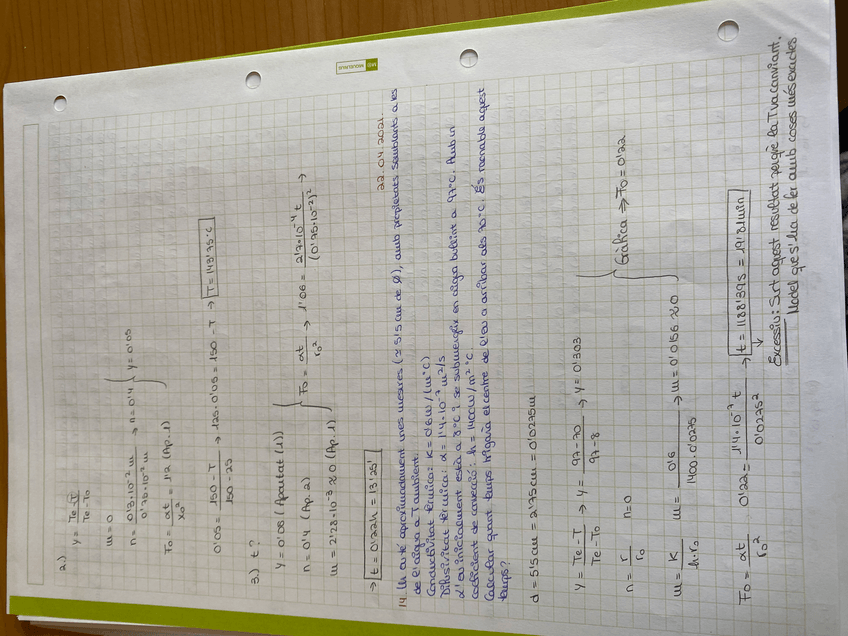 2.)
y = Te - T / Te - To
m = 0
n = 0'3·10⁻² m / 0'75·10⁻² m → n = 0'4 } y = 0'05
Fo = αt / xo² = 1'2 (Ap. 1)
0'05 = 150 - T / 150 - 25 → 125·0'05 = 150 - T → T = 143'75°C
3.) t?
y = 0'08 (Apartat (1))
n = 0'4 (Ap. 2)
m = 2'28·10⁻³ ≈ 0 (Ap. 1)
} Fo = αt / ro² → 1'06 = 2'7·10⁻⁴ t / (0'75·10⁻²)² →
→ t = 0'22h = 13'25'
MIQUELRIUS
22.04.2021.
14. Un ou té aproximadament unes mesures (≈ 5'5 cm de Ø), amb propietats semblants a les
de l'aigua a T ambient.
Conductivitat tèrmica: K = 0'6 W/(m°C)
Difusivitat tèrmica: α = 1'4·10⁻⁷ m²/s
L'ou inicialment està a 8°C i se submergeix en aigua bullint a 97°C. Amb un
coeficient de convecció: h = 1400 W/m² °C
Calcular quant temps trigaria el centre de l'ou a arribar als 70°C. És raonable aquest
temps?
d = 5'5 cm = 2'75 cm = 0'0275 m
y = Te - T / Te - To → y = 97 - 70 / 97 - 8 → y = 0'303
n = r / ro n = 0
m = K / h·ro m = 0'6 / 1400·0'0275 → m = 0'0156 ≈ 0
} Gràfica ⇒ Fo = 0'22
Fo = αt / ro² 0'22 = 1'4·10⁻⁷ t / 0'0275² → t = 1188'39 s = 19'81 min
Excessiu: Surt aquest resultat perquè la T va canviant.
Model que s'ha de fer amb coses més exactes